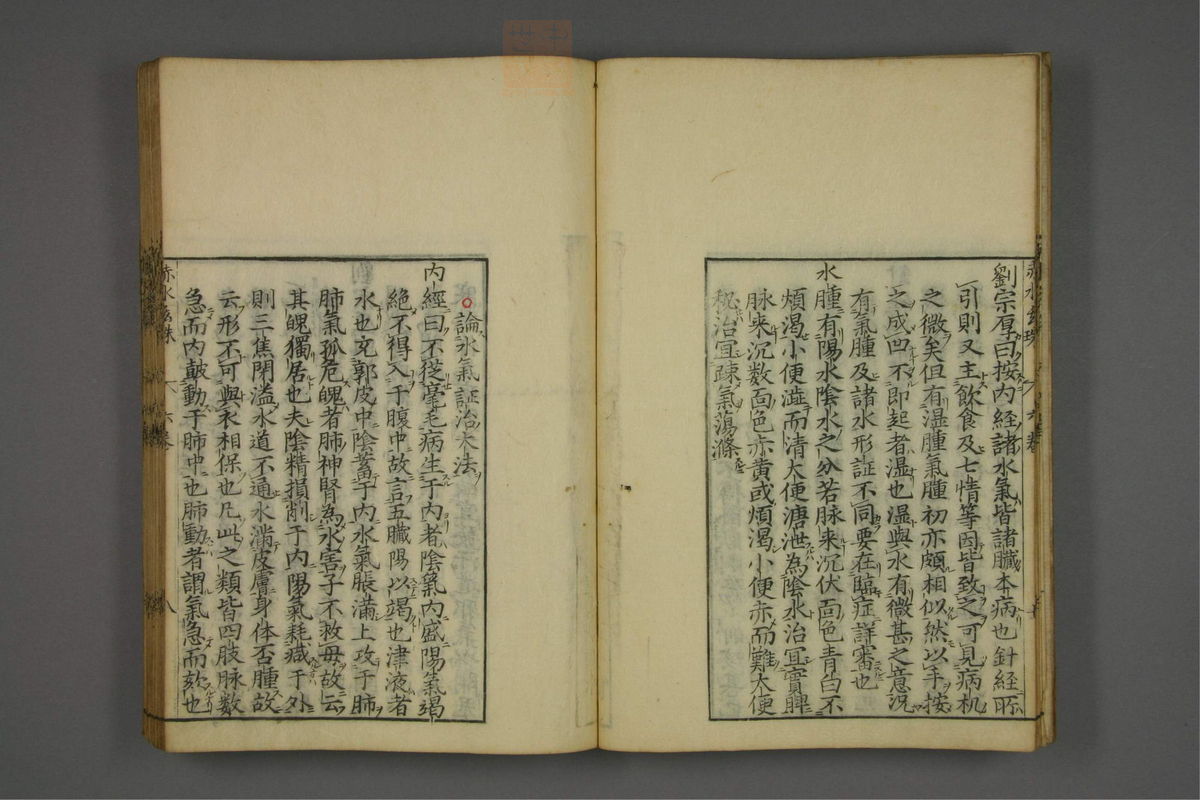 劉宗厚曰按内經諸水氣皆諸臟本病也針經所
引則又主飲食及七情等因皆致之可見病机
之微矣但有湿腫氣腫初亦頗相似然以手按
之成凹不即起者湿也湿與水有微甚之意况
有氣腫及諸水形証不同要在臨症詳審也
水腫有陽水陰水之分若脉来沉伏面色青白不
煩渇小便澁而清大便溏泄為陰水治宜實脾
脉来沉数面色赤黄或煩渇小便赤而難大便
秘治宜疎氣蕩滌
○論水氣証治大法
内經曰不從毫毛病生于内者陰氣内盛陽氣竭
絶不得入于腹中故言五臟陽以竭也津液者
水也充郭皮中陰蓄于内水氣脹滿上攻于肺
肺氣孤危魄者肺神腎為水害子不救母故云
其魄獨居也夫陰精損削于内陽氣耗減于外
則三焦閉溢水道不通水滿皮膚身体否腫故
云形不可與衣相保也凡此之類皆四肢脉数
急而内皷動于肺中也肺動者謂氣急而欬也
赤水玄珠 六卷 八